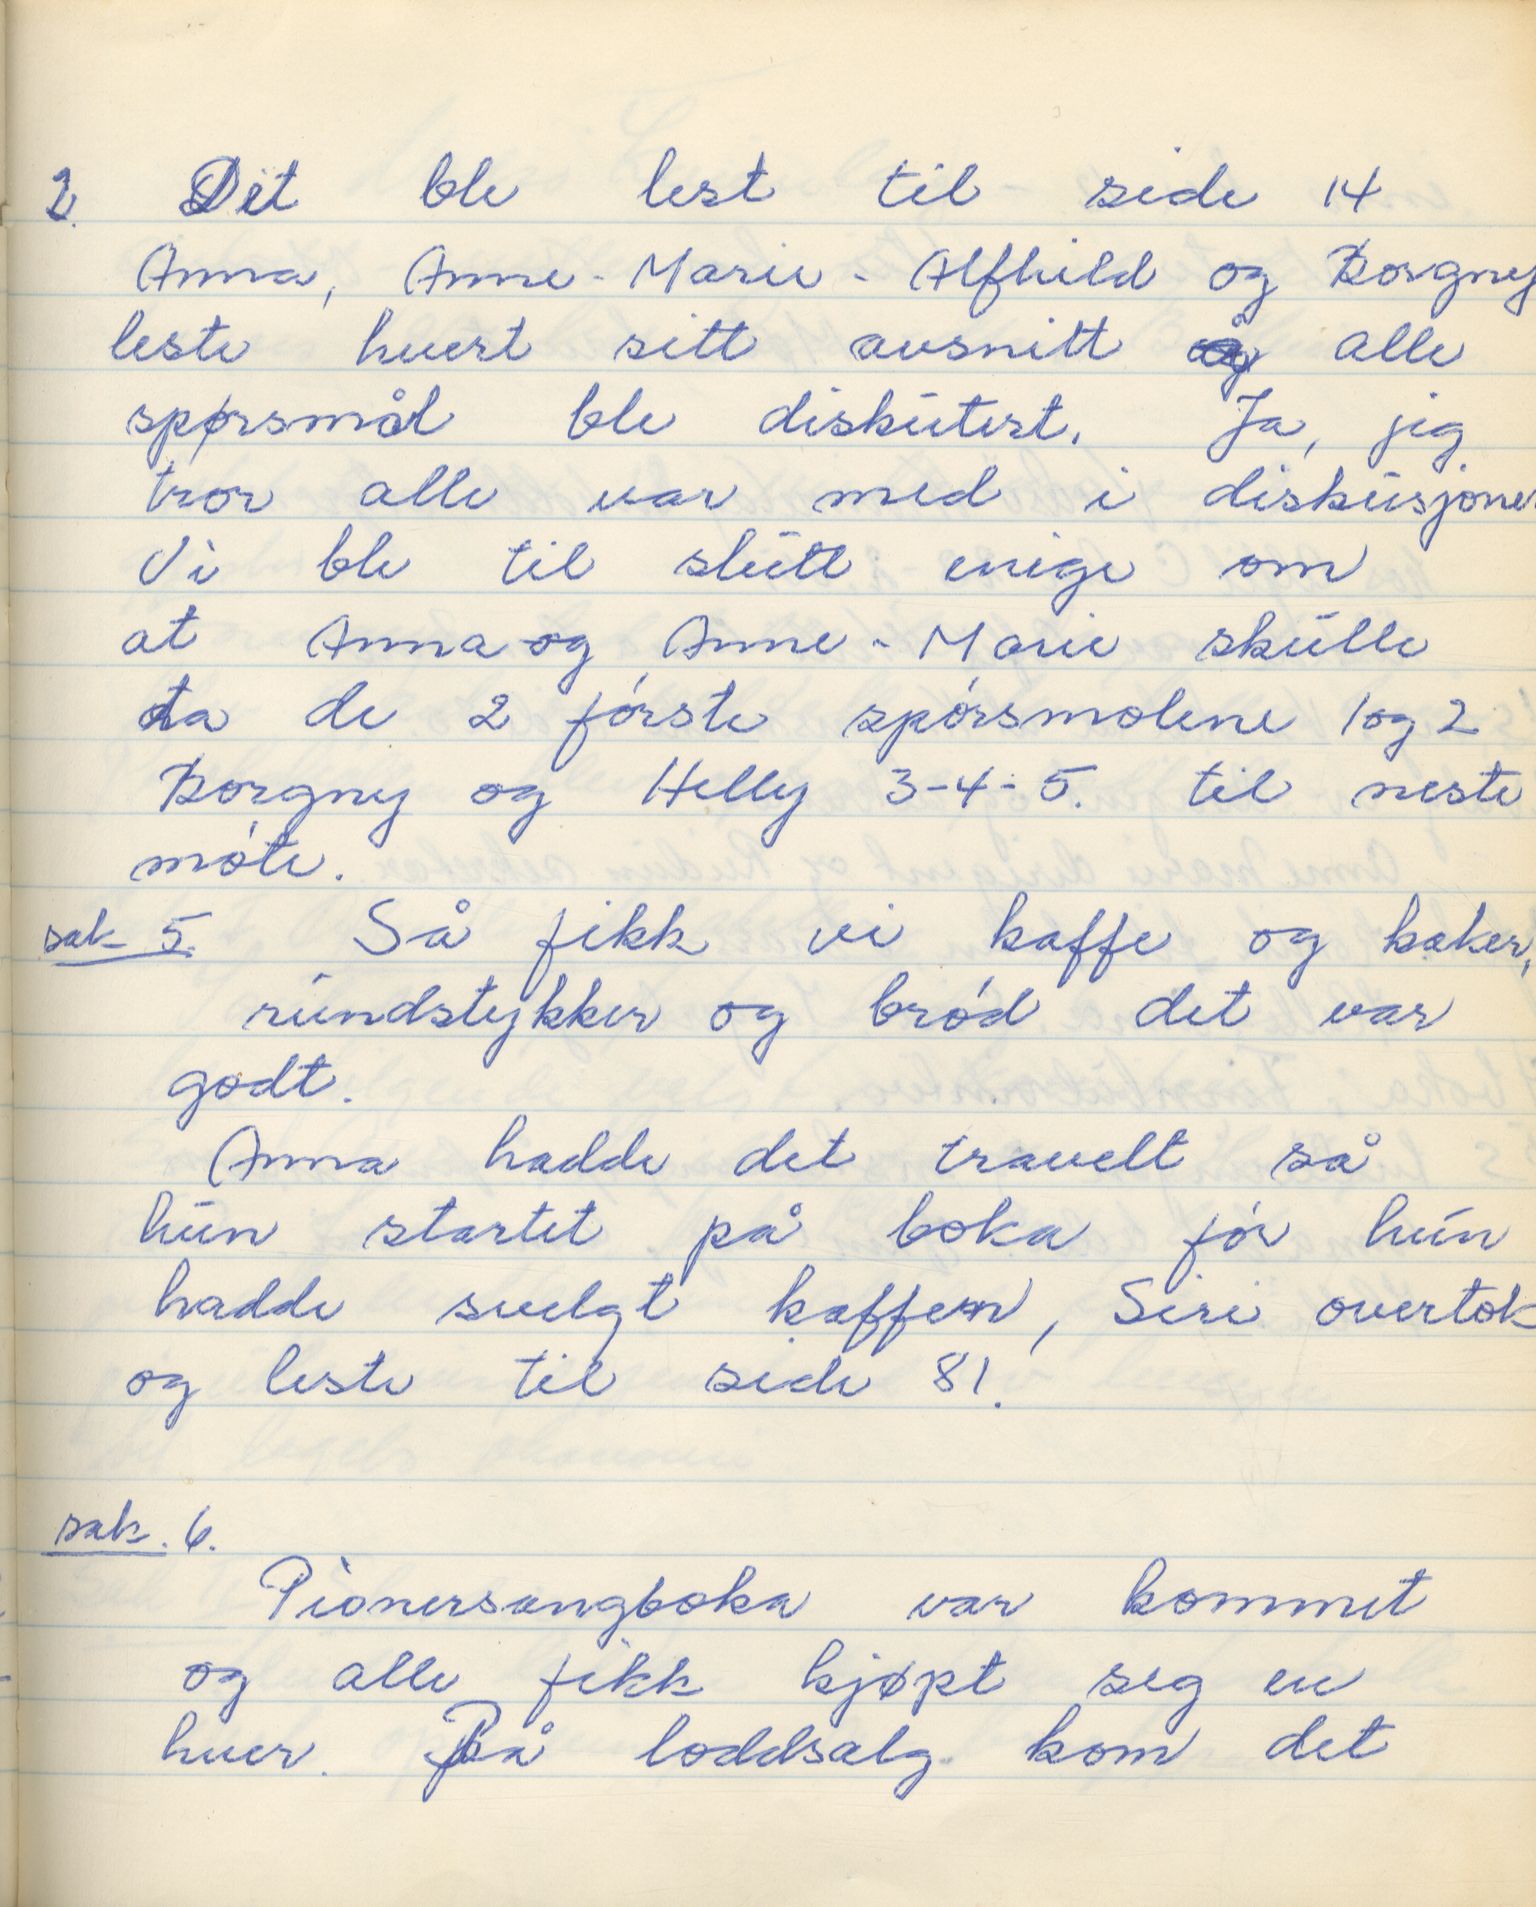 2. Det ble lest til side 14
Anna, Anne-Marie - Alfhild og Borgny
leste hvert sitt avsnitt og alle
spørsmål ble diskutert. Ja, jeg
tror alle var med i diskusjonen
Vi ble til slutt enige om
at Anna og Anne-Marie skulle
ta de 2 første spørsmolene 1 og 2
Borgny og Helly 3-4-5. til neste
møte.
sak 5. Så fikk vi kaffe og kaker,
rundstykker og brød det var
godt.
Anna hadde det travelt så
hun startet på boka før hun
hadde svelgt kaffen, Siri overtok
og leste til side 81.
sak. 6.
Pionersangboka var kommet
og alle fikk kjøpt seg en
hver. På loddsalg kom det